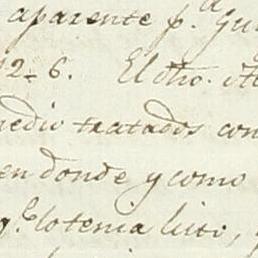 aparente p.a
12- 6. El dho.
tratados con
en donde y como
q.e lo tenia listo,